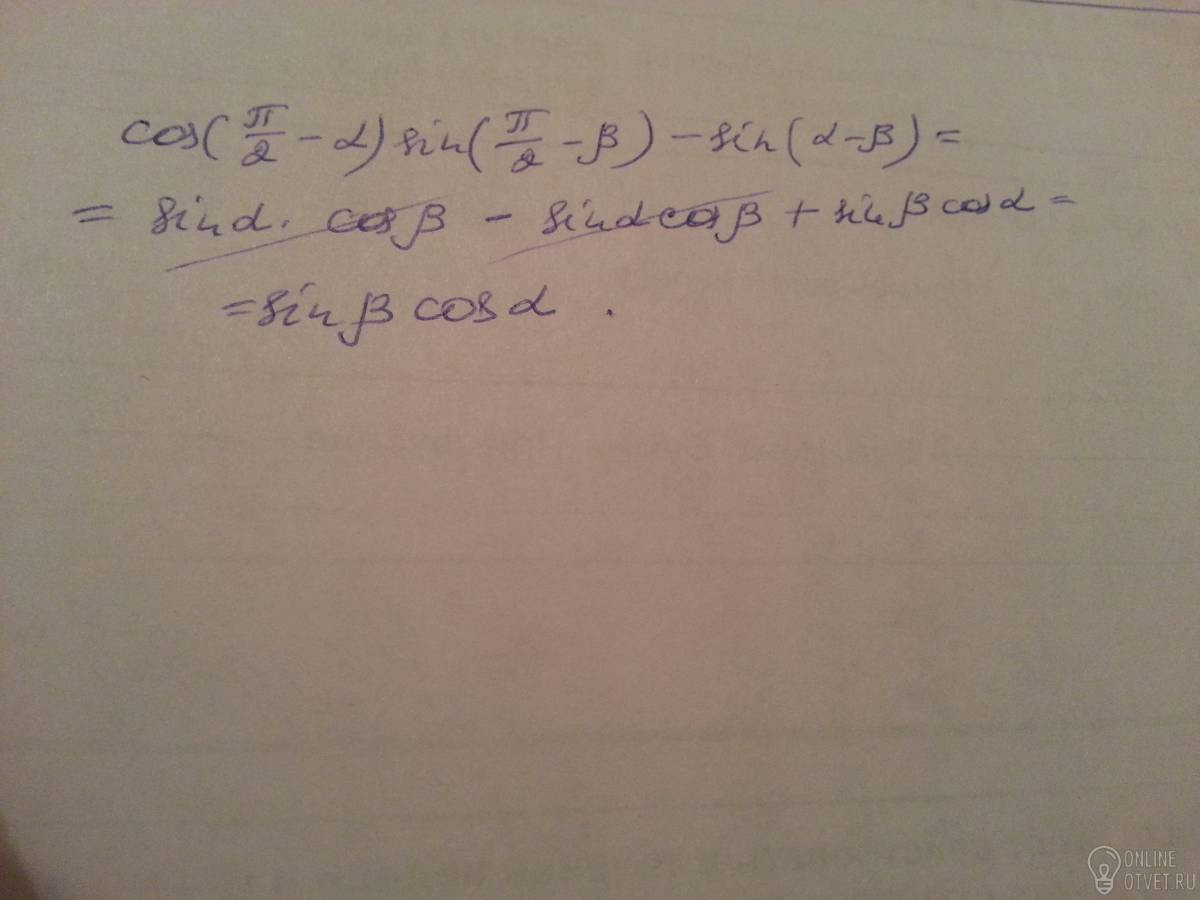 cos(π/2 - α) sin(π/2 - β) - sin(α - β) =
= sin α · cos β - sin α cos β + sin β cos α =
= sin β cos α .
ONLINE
OTVET.RU